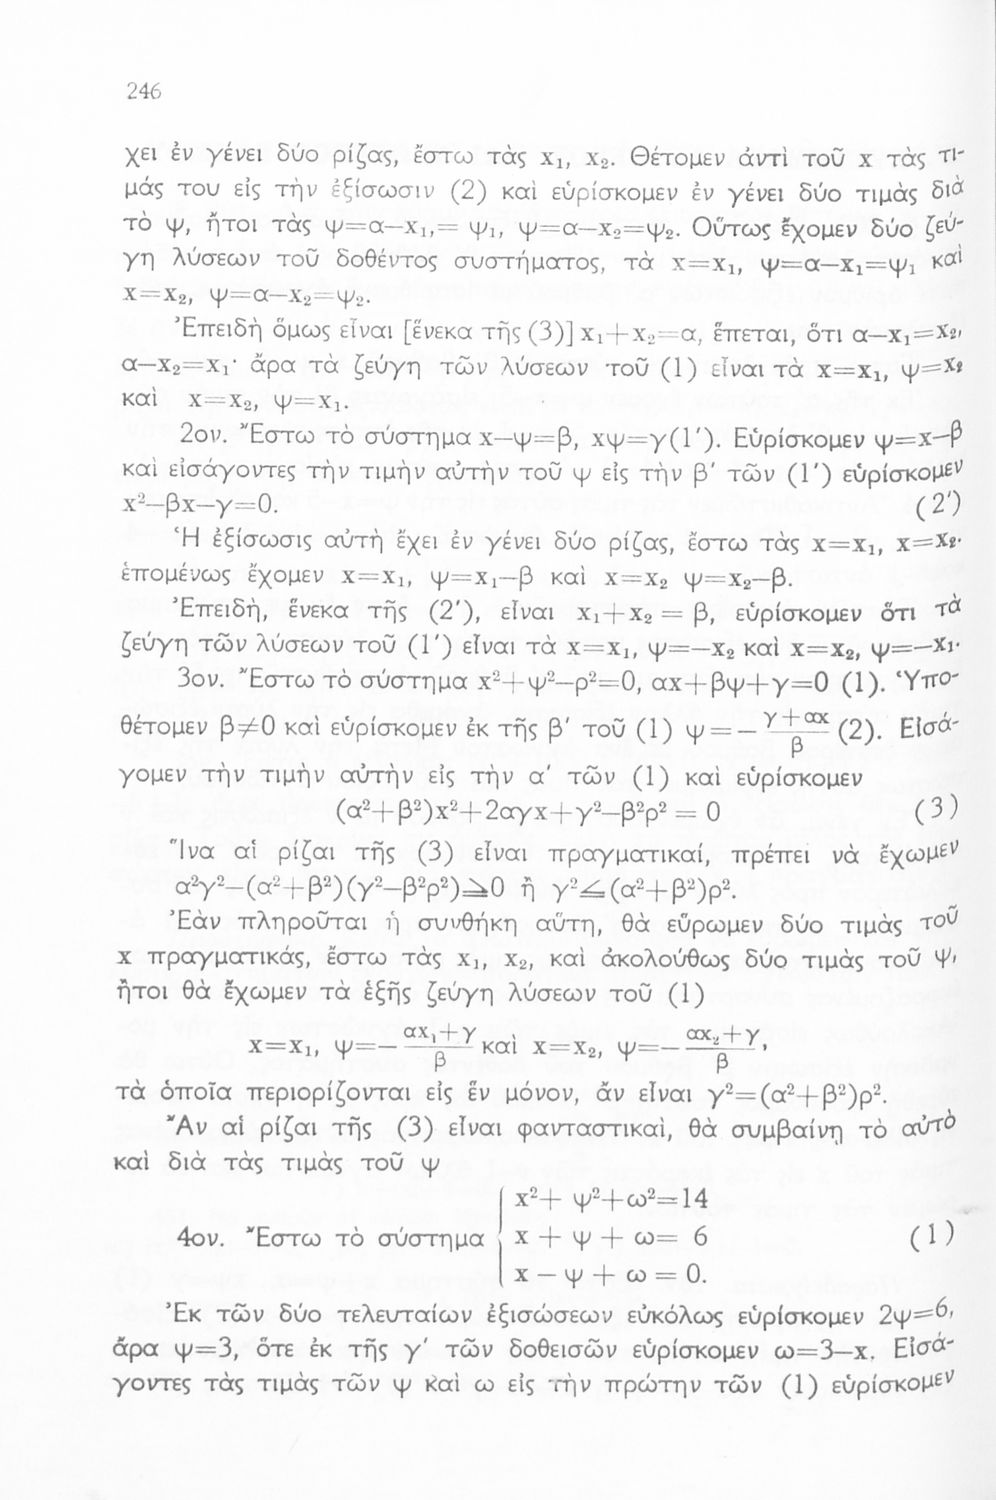 246
χει ἐν γένει δύο ρίζας, ἔστω τὰς x₁, x₂. Θέτομεν ἀντὶ τοῦ x τὰς τι-
μάς του εἰς τὴν ἐξίσωσιν (2) καὶ εὑρίσκομεν ἐν γένει δύο τιμὰς διὰ
τὸ ψ, ἤτοι τὰς ψ=α—x₁,= ψ₁, ψ=α—x₂=ψ₂. Οὕτως ἔχομεν δύο ζεύ-
γη λύσεων τοῦ δοθέντος συστήματος, τὰ x=x₁, ψ=α—x₁=ψ₁ καὶ
x=x₂, ψ=α—x₂=ψ₂.
Ἐπειδὴ ὅμως εἶναι [ἕνεκα τῆς (3)] x₁+x₂=α, ἕπεται, ὅτι α—x₁=x₂,
α—x₂=x₁· ἄρα τὰ ζεύγη τῶν λύσεων τοῦ (1) εἶναι τὰ x=x₁, ψ=x₂
καὶ x=x₂, ψ=x₁.
2ον. Ἔστω τὸ σύστημα x—ψ=β, xψ=γ(1'). Εὑρίσκομεν ψ=x—β
καὶ εἰσάγοντες τὴν τιμὴν αὐτὴν τοῦ ψ εἰς τὴν β' τῶν (1') εὑρίσκομεν
x²—βx—γ=0. (2')
Ἡ ἐξίσωσις αὐτὴ ἔχει ἐν γένει δύο ρίζας, ἔστω τὰς x=x₁, x=x₂·
ἑπομένως ἔχομεν x=x₁, ψ=x₁—β καὶ x=x₂ ψ=x₂—β.
Ἐπειδὴ, ἕνεκα τῆς (2'), εἶναι x₁+x₂ = β, εὑρίσκομεν ὅτι τὰ
ζεύγη τῶν λύσεων τοῦ (1') εἶναι τὰ x=x₁, ψ=—x₂ καὶ x=x₂, ψ=—x₁.
3ον. Ἔστω τὸ σύστημα x²+ψ²—ρ²=0, αx+βψ+γ=0 (1). Ὑπο-
θέτομεν β≠0 καὶ εὑρίσκομεν ἐκ τῆς β' τοῦ (1) ψ = — (γ+αx)/β (2). Εἰσά-
γομεν τὴν τιμὴν αὐτὴν εἰς τὴν α' τῶν (1) καὶ εὑρίσκομεν
(α²+β²)x²+2αγx+γ²—β²ρ² = 0 (3)
Ἵνα αἱ ρίζαι τῆς (3) εἶναι πραγματικαί, πρέπει νὰ ἔχωμεν
α²γ²—(α²+β²)(γ²—β²ρ²)≥0 ἢ γ²≤(α²+β²)ρ².
Ἐὰν πληροῦται ἡ συνθήκη αὕτη, θὰ εὕρωμεν δύο τιμὰς τοῦ
x πραγματικάς, ἔστω τὰς x₁, x₂, καὶ ἀκολούθως δύο τιμὰς τοῦ ψ,
ἤτοι θὰ ἔχωμεν τὰ ἑξῆς ζεύγη λύσεων τοῦ (1)
x=x₁, ψ=— (αx₁+γ)/β καὶ x=x₂, ψ=— (αx₂+γ)/β,
τὰ ὁποῖα περιορίζονται εἰς ἓν μόνον, ἂν εἶναι γ²=(α²+β²)ρ².
Ἂν αἱ ρίζαι τῆς (3) εἶναι φανταστικαὶ, θὰ συμβαίνῃ τὸ αὐτὸ
καὶ διὰ τὰς τιμὰς τοῦ ψ
x²+ ψ²+ω²=14
4ον. Ἔστω τὸ σύστημα x + ψ + ω= 6 (1)
x — ψ + ω = 0.
Ἐκ τῶν δύο τελευταίων ἐξισώσεων εὐκόλως εὑρίσκομεν 2ψ=6,
ἄρα ψ=3, ὅτε ἐκ τῆς γ' τῶν δοθεισῶν εὑρίσκομεν ω=3—x. Εἰσά-
γοντες τὰς τιμὰς τῶν ψ καὶ ω εἰς τὴν πρώτην τῶν (1) εὑρίσκομεν